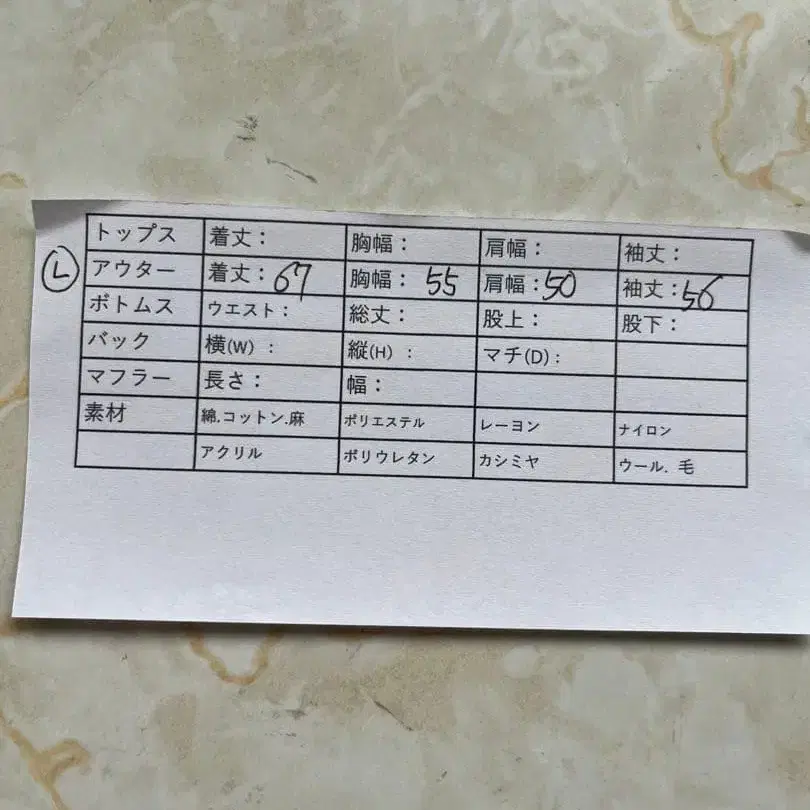 トップス 着丈： 胸幅： 肩幅： 袖丈：
L アウター 着丈：67 胸幅：55 肩幅：50 袖丈：56
ボトムス ウエスト： 総丈： 股上： 股下：
バック 横(W)： 縦(H)： マチ(D)：
マフラー 長さ： 幅：
素材 綿.コットン.麻 ポリエステル レーヨン ナイロン
アクリル ポリウレタン カシミヤ ウール. 毛